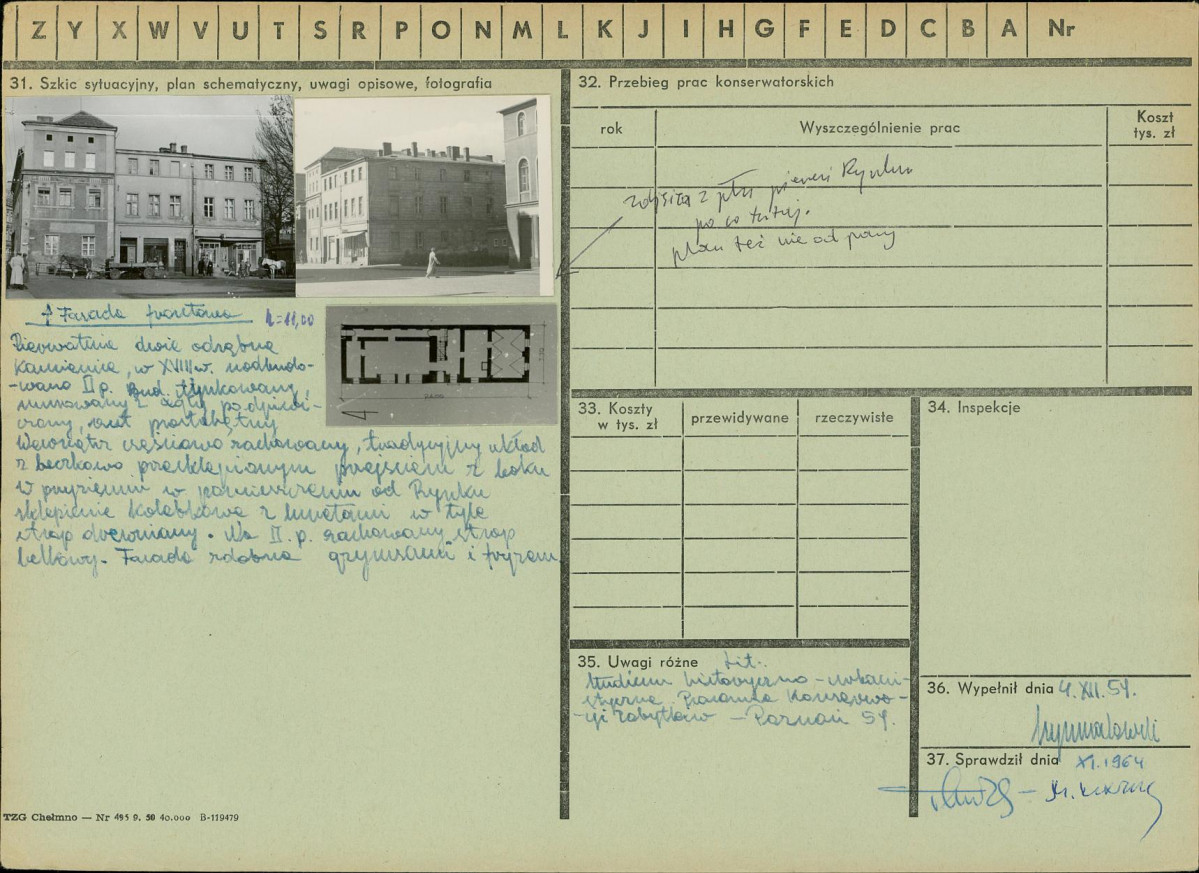 Z Y X W V U T S R P O N M L K J I H G F E D C B A Nr
31. Szkic sytuacyjny, plan schematyczny, uwagi opisowe, fotografia
Fasada frontowa h=11,00
Pierwotnie dwie odrębne
kamienice, w XVIII w. nadbudo-
-wano II p. Bud. tynkowany,
murowany z cegły podpiwni-
czony,
Wewnątrz częściowo zachowany, tradycyjny układ
z beczkowo przesklepionym przejściem z boku
W przyziemiu w pomieszczeniu od Rynku
sklepienie kolebkowe z lunetami w tyle
strop drewniany. Na II. p. zachowany strop
belkowy. Fasada zdobna gzymsami i fryzem
TZG Chełmno — Nr 495 9. 50 40.000 B-119479
32. Przebieg prac konserwatorskich
rok
Wyszczególnienie prac
Koszt
tys. zł
zdjęcia z płn pierzei Rynku
po co tutaj.
plan też nie od pary
33. Koszty
w tys. zł
przewidywane
rzeczywiste
34. Inspekcje
35. Uwagi różne Lit.
Studium historyczno-urbani-
styczne Pracownia Konserwa-
-cji Zabytków — Poznań 57.
36. Wypełnił dnia 4.XII.59.
37. Sprawdził dnia XI.1964